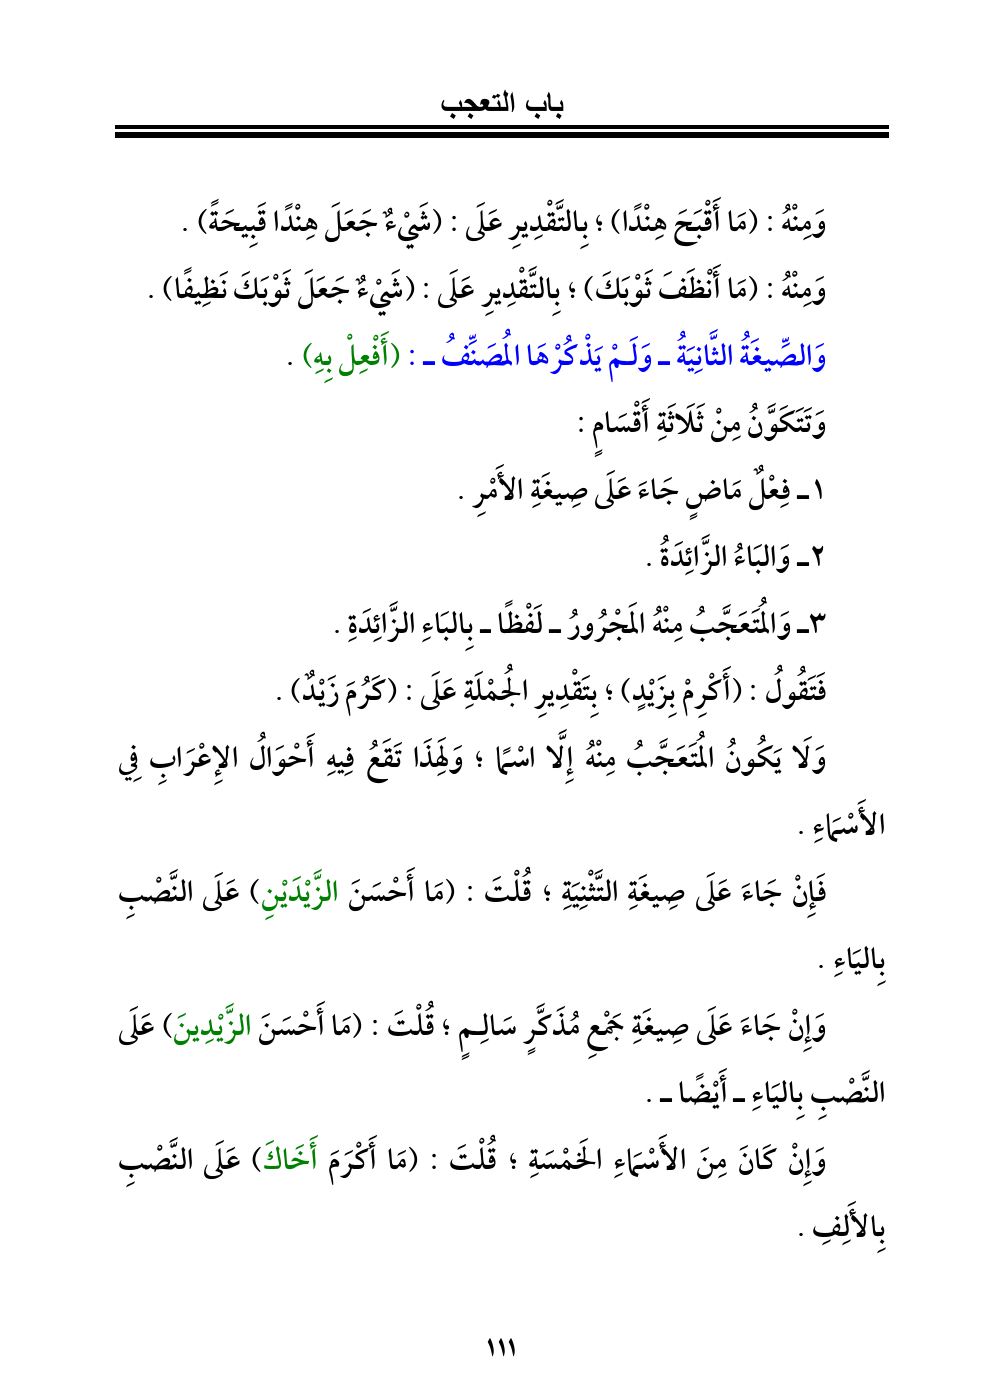 باب التعجب
وَمِنْهُ : (مَا أَقْبَحَ هِنْدًا) ؛ بِالتَّقْدِيرِ عَلَى : (شَيْءٌ جَعَلَ هِنْدًا قَبِيحَةً) .
وَمِنْهُ : (مَا أَنْظَفَ ثَوْبَكَ) ؛ بِالتَّقْدِيرِ عَلَى : (شَيْءٌ جَعَلَ ثَوْبَكَ نَظِيفًا) .
وَالصِّيغَةُ الثَّانِيَةُ ـ وَلَـمْ يَذْكُرْهَا المُصَنِّفُ ـ : (أَفْعِلْ بِهِ) .
وَتَتَكَوَّنُ مِنْ ثَلَاثَةِ أَقْسَامٍ :
١ـ فِعْلٌ مَاضٍ جَاءَ عَلَى صِيغَةِ الأَمْرِ .
٢ـ وَالبَاءُ الزَّائِدَةُ .
٣ـ وَالمُتَعَجَّبُ مِنْهُ المَجْرُورُ ـ لَفْظًا ـ بِالبَاءِ الزَّائِدَةِ .
فَتَقُولُ : (أَكْرِمْ بِزَيْدٍ) ؛ بِتَقْدِيرِ الجُمْلَةِ عَلَى : (كَرُمَ زَيْدٌ) .
وَلَا يَكُونُ المُتَعَجَّبُ مِنْهُ إِلَّا اسْمًا ؛ وَلَهِذَا تَقَعُ فِيهِ أَحْوَالُ الإِعْرَابِ فِي
الأَسْمَاءِ .
فَإِنْ جَاءَ عَلَى صِيغَةِ التَّثْنِيَةِ ؛ قُلْتَ : (مَا أَحْسَنَ الزَّيْدَيْنِ) عَلَى النَّصْبِ
بِاليَاءِ .
وَإِنْ جَاءَ عَلَى صِيغَةِ جَمْعِ مُذَكَّرٍ سَالِـمٍ ؛ قُلْتَ : (مَا أَحْسَنَ الزَّيْدِينَ) عَلَى
النَّصْبِ بِاليَاءِ ـ أَيْضًا ـ .
وَإِنْ كَانَ مِنَ الأَسْمَاءِ الخَمْسَةِ ؛ قُلْتَ : (مَا أَكْرَمَ أَخَاكَ) عَلَى النَّصْبِ
بِالأَلِفِ .
١١١